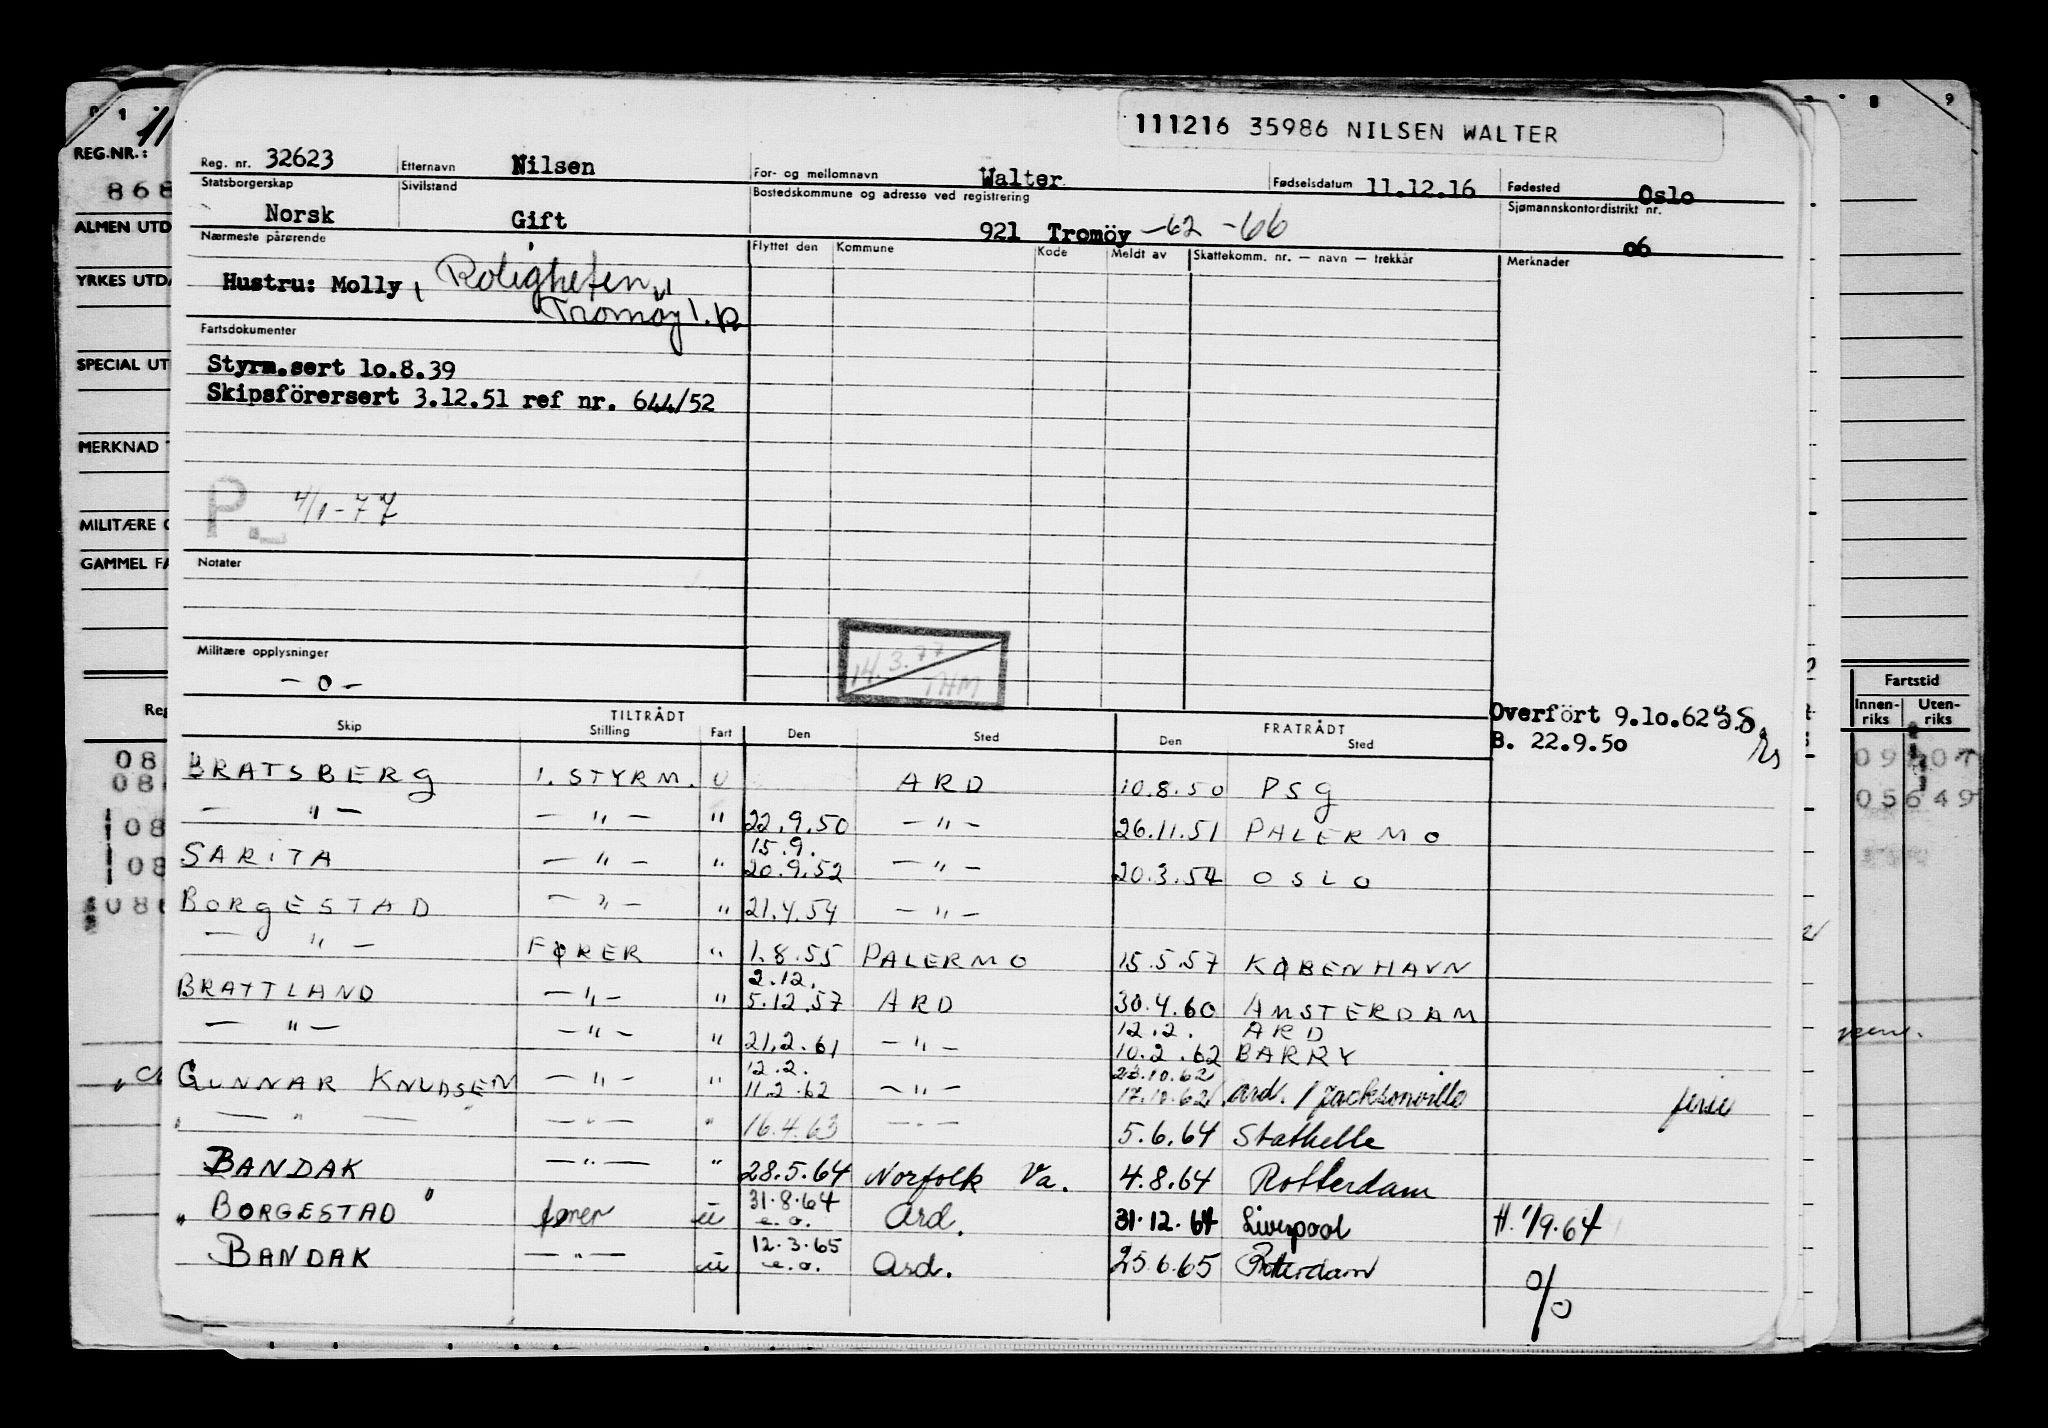 111216 35986 NILSEN WALTER
REG.NR.:
868
ALMEN UTD
YRKES UTDA
SPECIAL UT
MERKNAD T
MILITÆRE O
GAMMEL FA
Reg. nr. 32623 Etternavn Nilsen For- og mellomnavn Walter Fødselsdatum 11.12.16 Fødested Oslo
Statsborgerskap Norsk Sivilstand Gift Bostedskommune og adresse ved registrering 921 Tromöy -62 -66 Sjømannskontordistrikt nr. o6
Nærmeste pårørende Flyttet den Kommune Kode Meldt av Skattekomm. nr. — navn — trekkår Merknader
Hustru: Molly, Roligheten,
Tromøy
Fartsdokumenter
Styrm.sert 1o.8.39
Skipsförersert 3.12.51 ref nr. 644/52
P. 4/1-77
Notater
14.3.77
THM
Militære opplysninger
- o -
Overfört 9.1o.62
B. 22.9.5o
TILTRÅDT FRATRÅDT
Skip Stilling Fart Den Sted Den Sted
BRATSBERG 1. STYRM. U ARD 10.8.50 PSG
— " — — " — " 22.9.50 — " — 26.11.51 PALERMO
15.9.
SARITA — " — " 20.9.52 — " — 20.3.54 OSLO
BORGESTAD — " — " 21.4.54 — " —
— " — FØRER " 1.8.55 PALERMO 15.5.57 KØBENHAVN
2.12.
BRATTLAND — " — " 5.12.57 ARD 30.4.60 AMSTERDAM
12.2. ARD
— " — — " — " 21.2.61 — " — 10.2.62 BARRY
12.2. 23.10.62
GUNNAR KNUDSEN — " — " 11.2.62 — " — 17.10.62 Ard. / Jacksonville ferie
— " — — " — " 16.4.63 — " — 5.6.64 Stathelle
BANDAK — " — " 28.5.64 Norfolk Va. 4.8.64 Rotterdam
" BORGESTAD " fører u 31.8.64 e.o. Ard. 31.12.64 Liverpool H. 1/9.64
BANDAK — " — u 12.3.65 e.o. Ard. 25.6.65 Rotterdam
o/o
Fartstid
Innen-
riks
Uten-
riks
05649